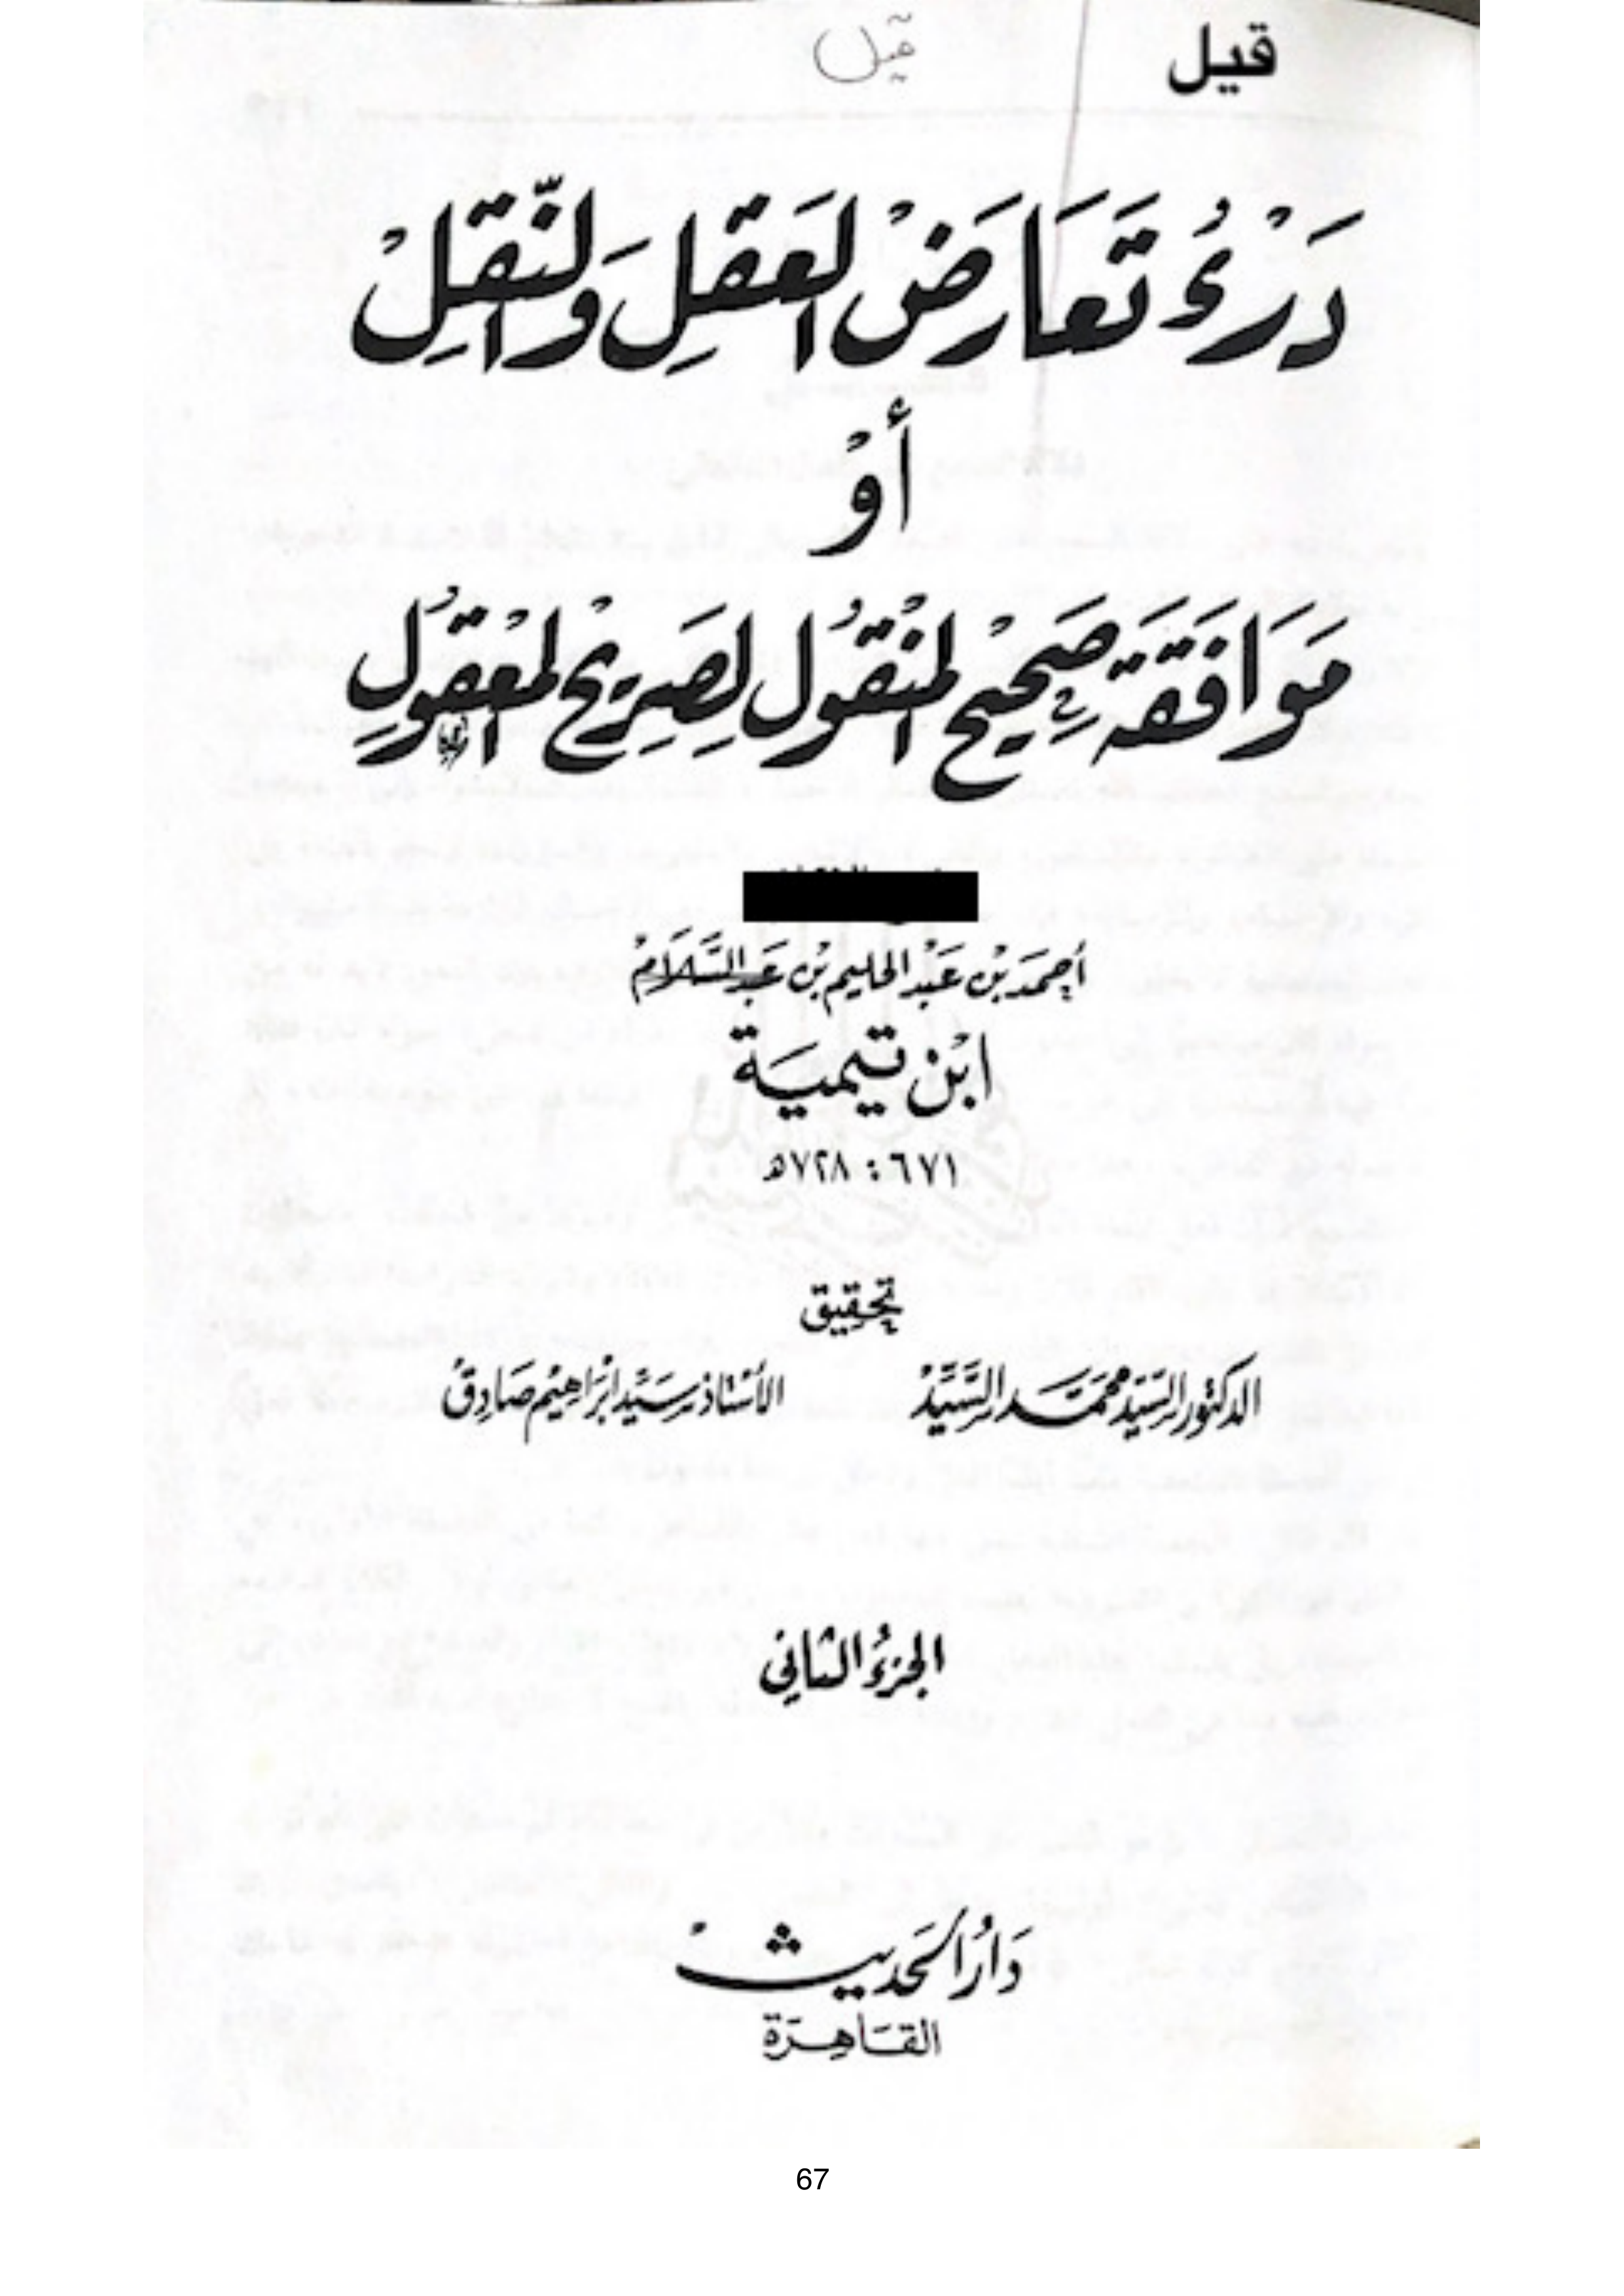 قيل قيل
دَرْءُ تَعَارَضْ العَقلِ وَالنّقلِ
أَوْ
مَوَافَقَة صَحِيْح المنْقُول لِصَرِيْح المعْقُولِ
أحمَد بْن عَبْد الحليم بْن عَبد السَّلَامْ
ابْن تيميَة
٦٧١ : ٧٢٨ھ
تحقيق
الدكتور السَّيّد محمَّد السَّيِّدْ الأسْتاذ سَيِّد إبْرَاهِيْم صَادِقْ
الجزءُ الثاني
دَارُ الحَديثْ
القَاهِرَة
67